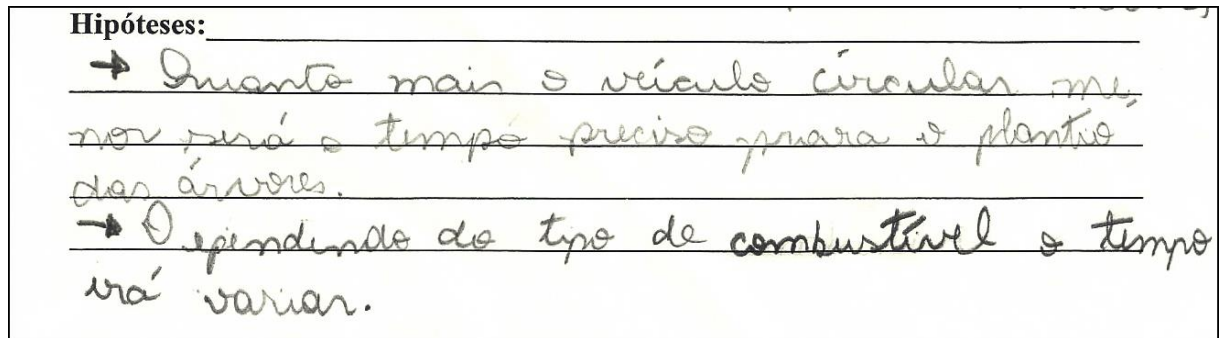 Hipóteses:
→ Quanto mais o veículo circular me,
nor será o tempo preciso para o plantio
das árvores.
→ Dependendo do tipo de combustível o tempo
irá variar.